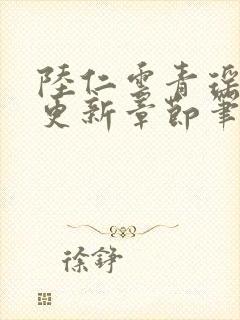 陸仁雲青瑤
更新章節筆
徐錚